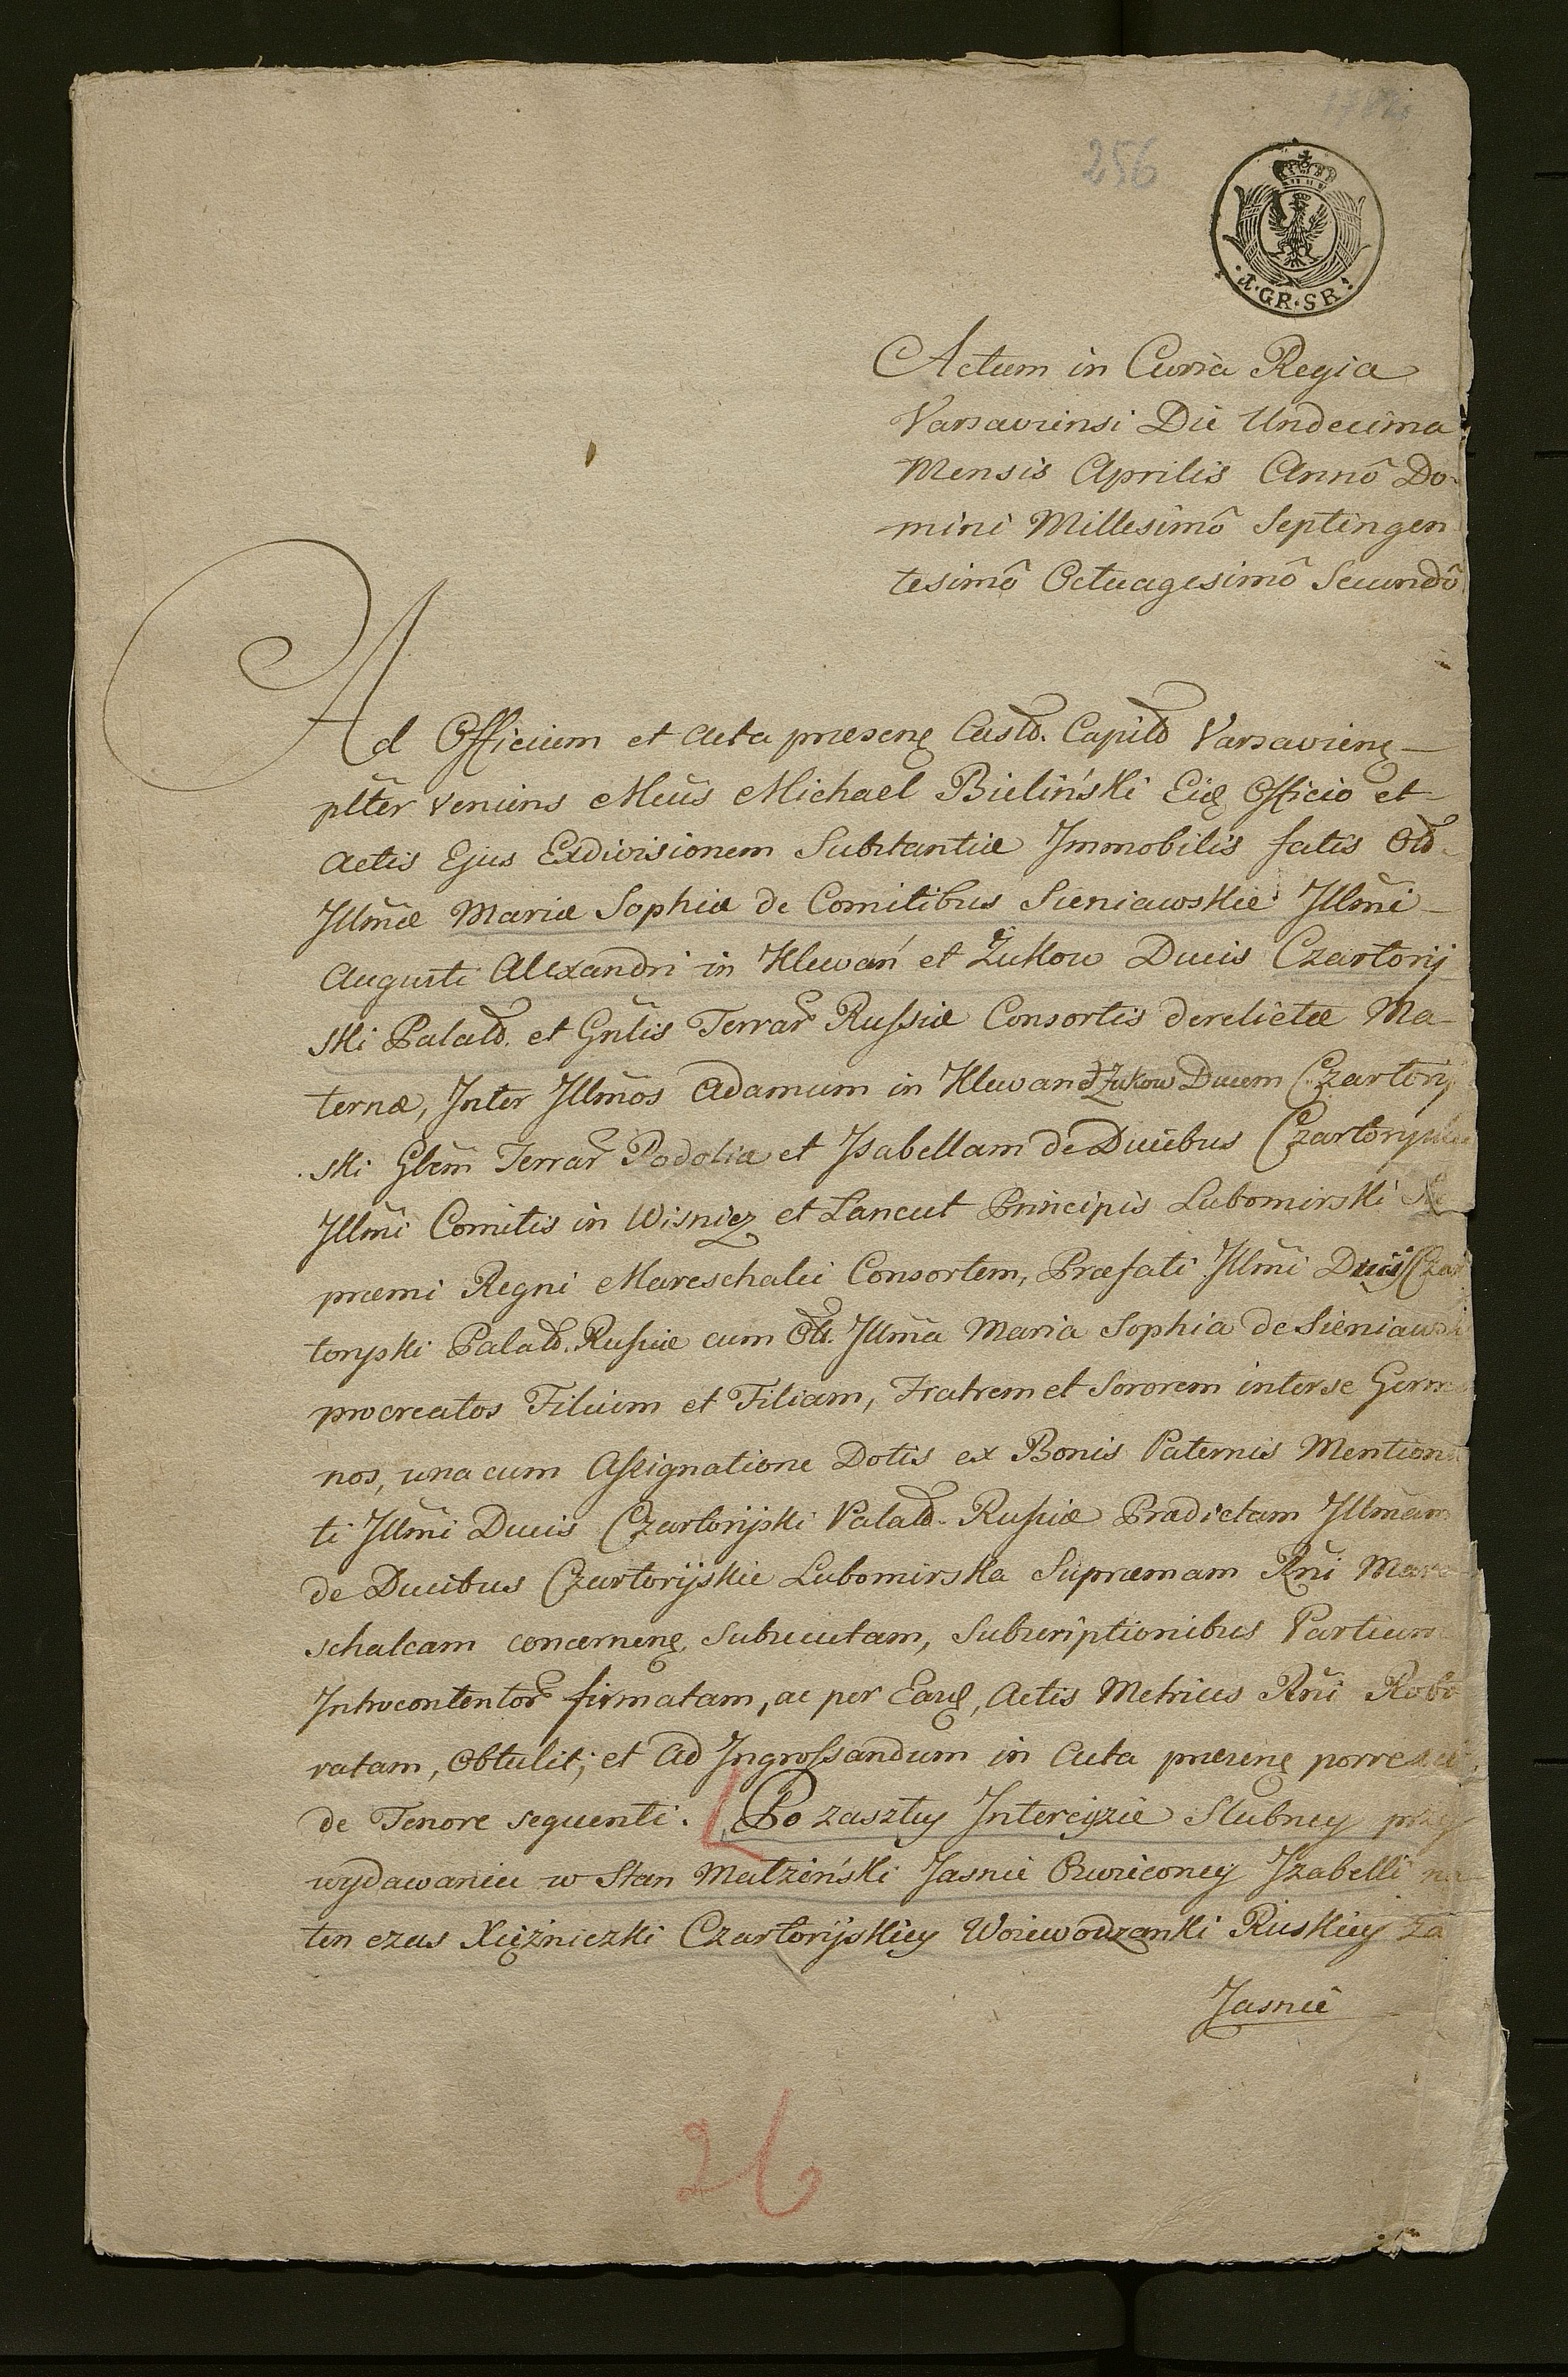 256
1782
·1·GR·SR·
Actum in Curia Regia
Varsaviensi Die Undecima
Mensis Aprilis Annô Do-
mini Millesimô Septingen
tesimô Octuagesimô Secundô
Ad Officium et Acta præsenę Castb. Capitb Varsavienę
pltter veniens Mcus Michael Bieliński Eidę Officio et
Actis Ejus Exdivisionem Substantiæ Immobilis fatis Olb.
Jllmæ Mariæ Sophiæ de Comitibus Sieniawskie Jllmi
Augusti Alexandri in Klewań et Zukow Ducis Czartorij
ski Palatb. et Gnlis Terrar Russiæ Consortis derelictæ Ma-
ternæ, Inter Jllmos Adamum in Klewan et Zukow Ducem Czartory
ski Glem Terrar Podoliæ et Jsabellam de Ducibus
Jllmi Comitis in Wisnicz et Lancut Principis Lubomirski
premi Regni Mareschalci Consortem, Præfati Jllmi Ducis Czar
toryski Palatb. Russiæ cum Olb. Jllma Maria Sophia de Sieniawsk
procreatos Filium et Filiam, Fratrem et Sororem inter se Germa
nos, una cum Assignatione Dotis ex Bonis Paternis Mentiona
ti Jllmi Ducis Czartorijski Palatb. Russiæ Prædictam Jllmam
de Ducibus Czartorijskie Lubomirska Supræmam Rni Mare
schalcam concernenę subsecutam, Subscriptionibus Partium
Introcontentor firmatam, ac per Easdę, Actis Metrices Rni Robo
ratam, Obtulit; et Ad Ingrossandum in Acta præsenę porrexit
de Tenore sequenti. Po zaszłey Intercyzie Slubney przy
wydawaniu w Stan Małżeński Jasnie Oswieconey Jzabelli na
ten czas Xiężniczki Czartorijskiey Woiewodzanki Ruskiey za
Jasnie
26